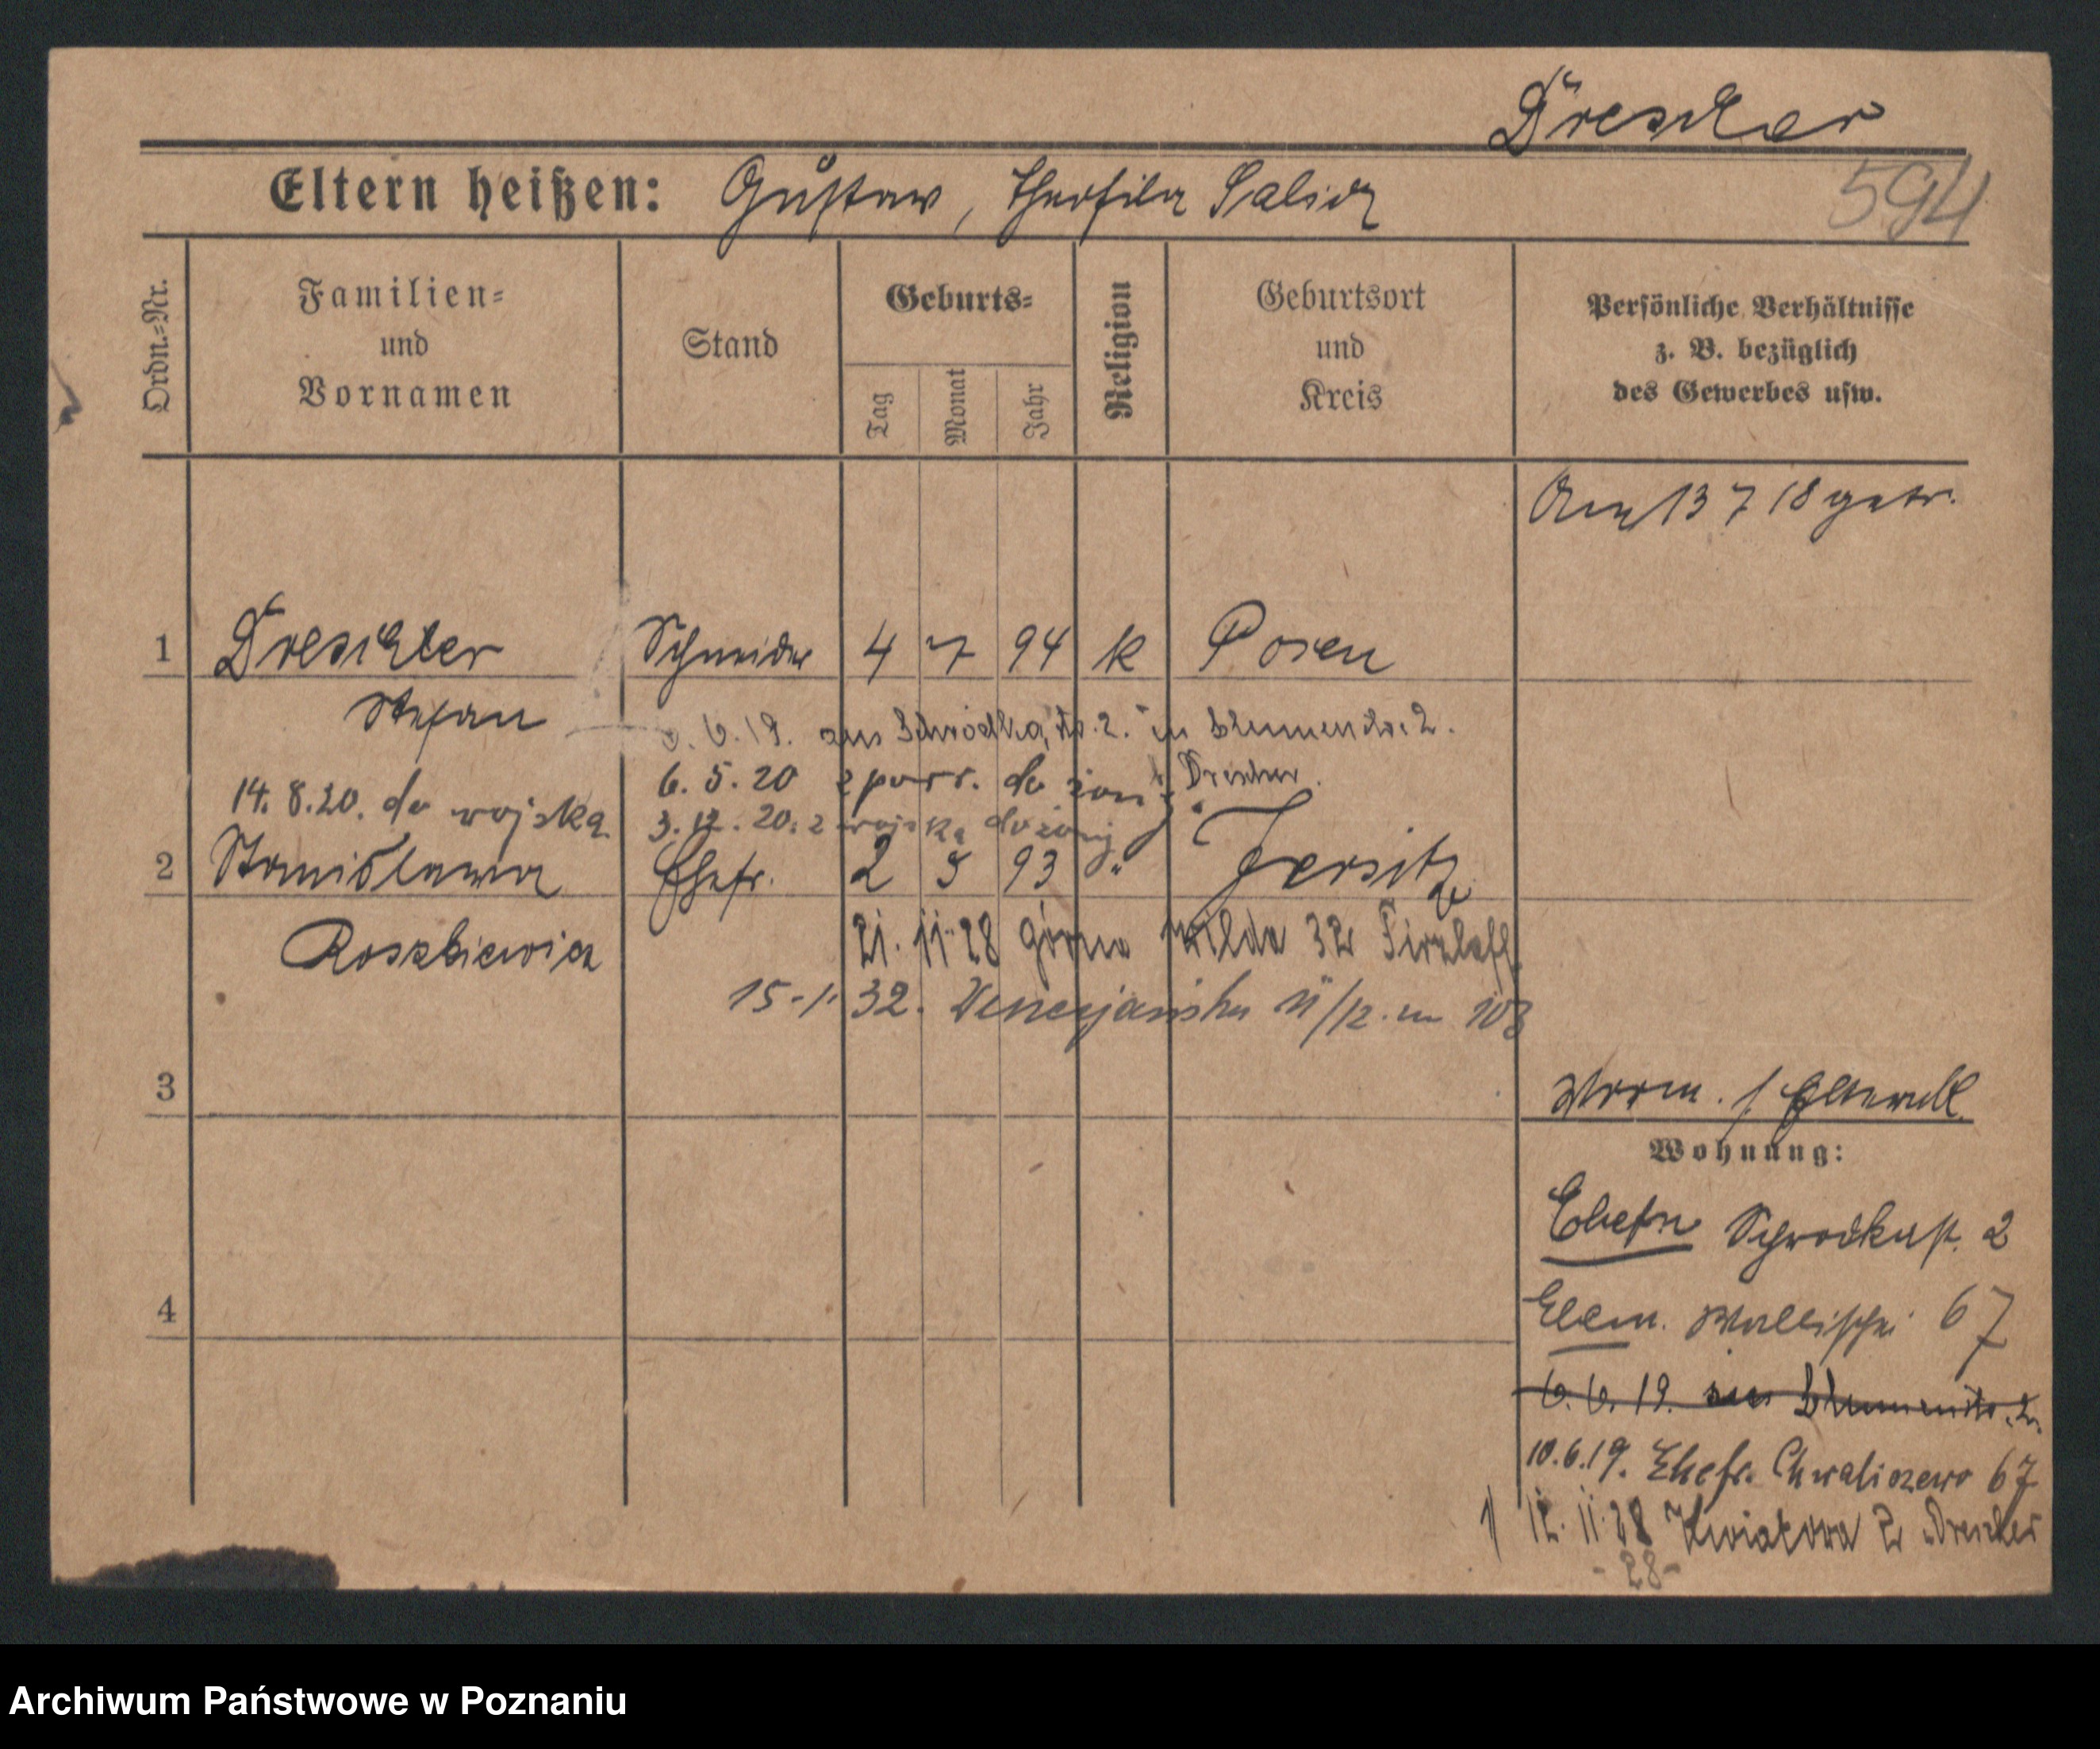 Drescher
Eltern heißen: Gustaw, Theofila Salich
594
Ordn.=Nr.
Familien=
und
Vornamen
Stand
Geburts=
Tag
Monat
Jahr
Religion
Geburtsort
und
Kreis
Persönliche Verhältnisse
z. B. bezüglich
des Gewerbes usw.
13 7 18 getr.
1 Drescher Schneider 4 7 94 k Posen
Stefan
6.19. aus Schrodka 2. in Blumenstr. 2.
6.5.20 z do żony Drescher
14.8.20. do wojska
3.12.20. z wojska do żony
2 Stanislawa Ehefr. 2 5 93 " Jersitz
Roszkiewicz
21.11.28 górna wilda 32
15.1.32. 103
3
Wohnung:
Ehefr Schrodkastr. 2
4
Eltern. Wallischei 67
6.6.19. aus Blumenstr. 2.
10.6.19. Ehefr. Chwaliszewo 67
1/ 12.11.28 Kwiatowa 2 Drescher
-28-
Archiwum Państwowe w Poznaniu